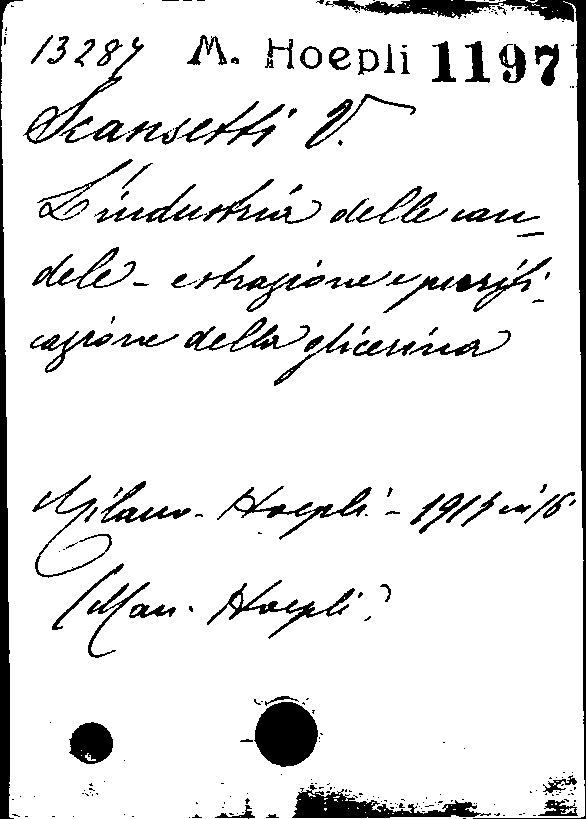 13287 M. Hoepli 1197
Scansetti V.
L'industria delle can-
dele - estrazione e purifi-
cazione della glicerina
Milano - Hoepli - 1915 in 16°
(Man. Hoepli)